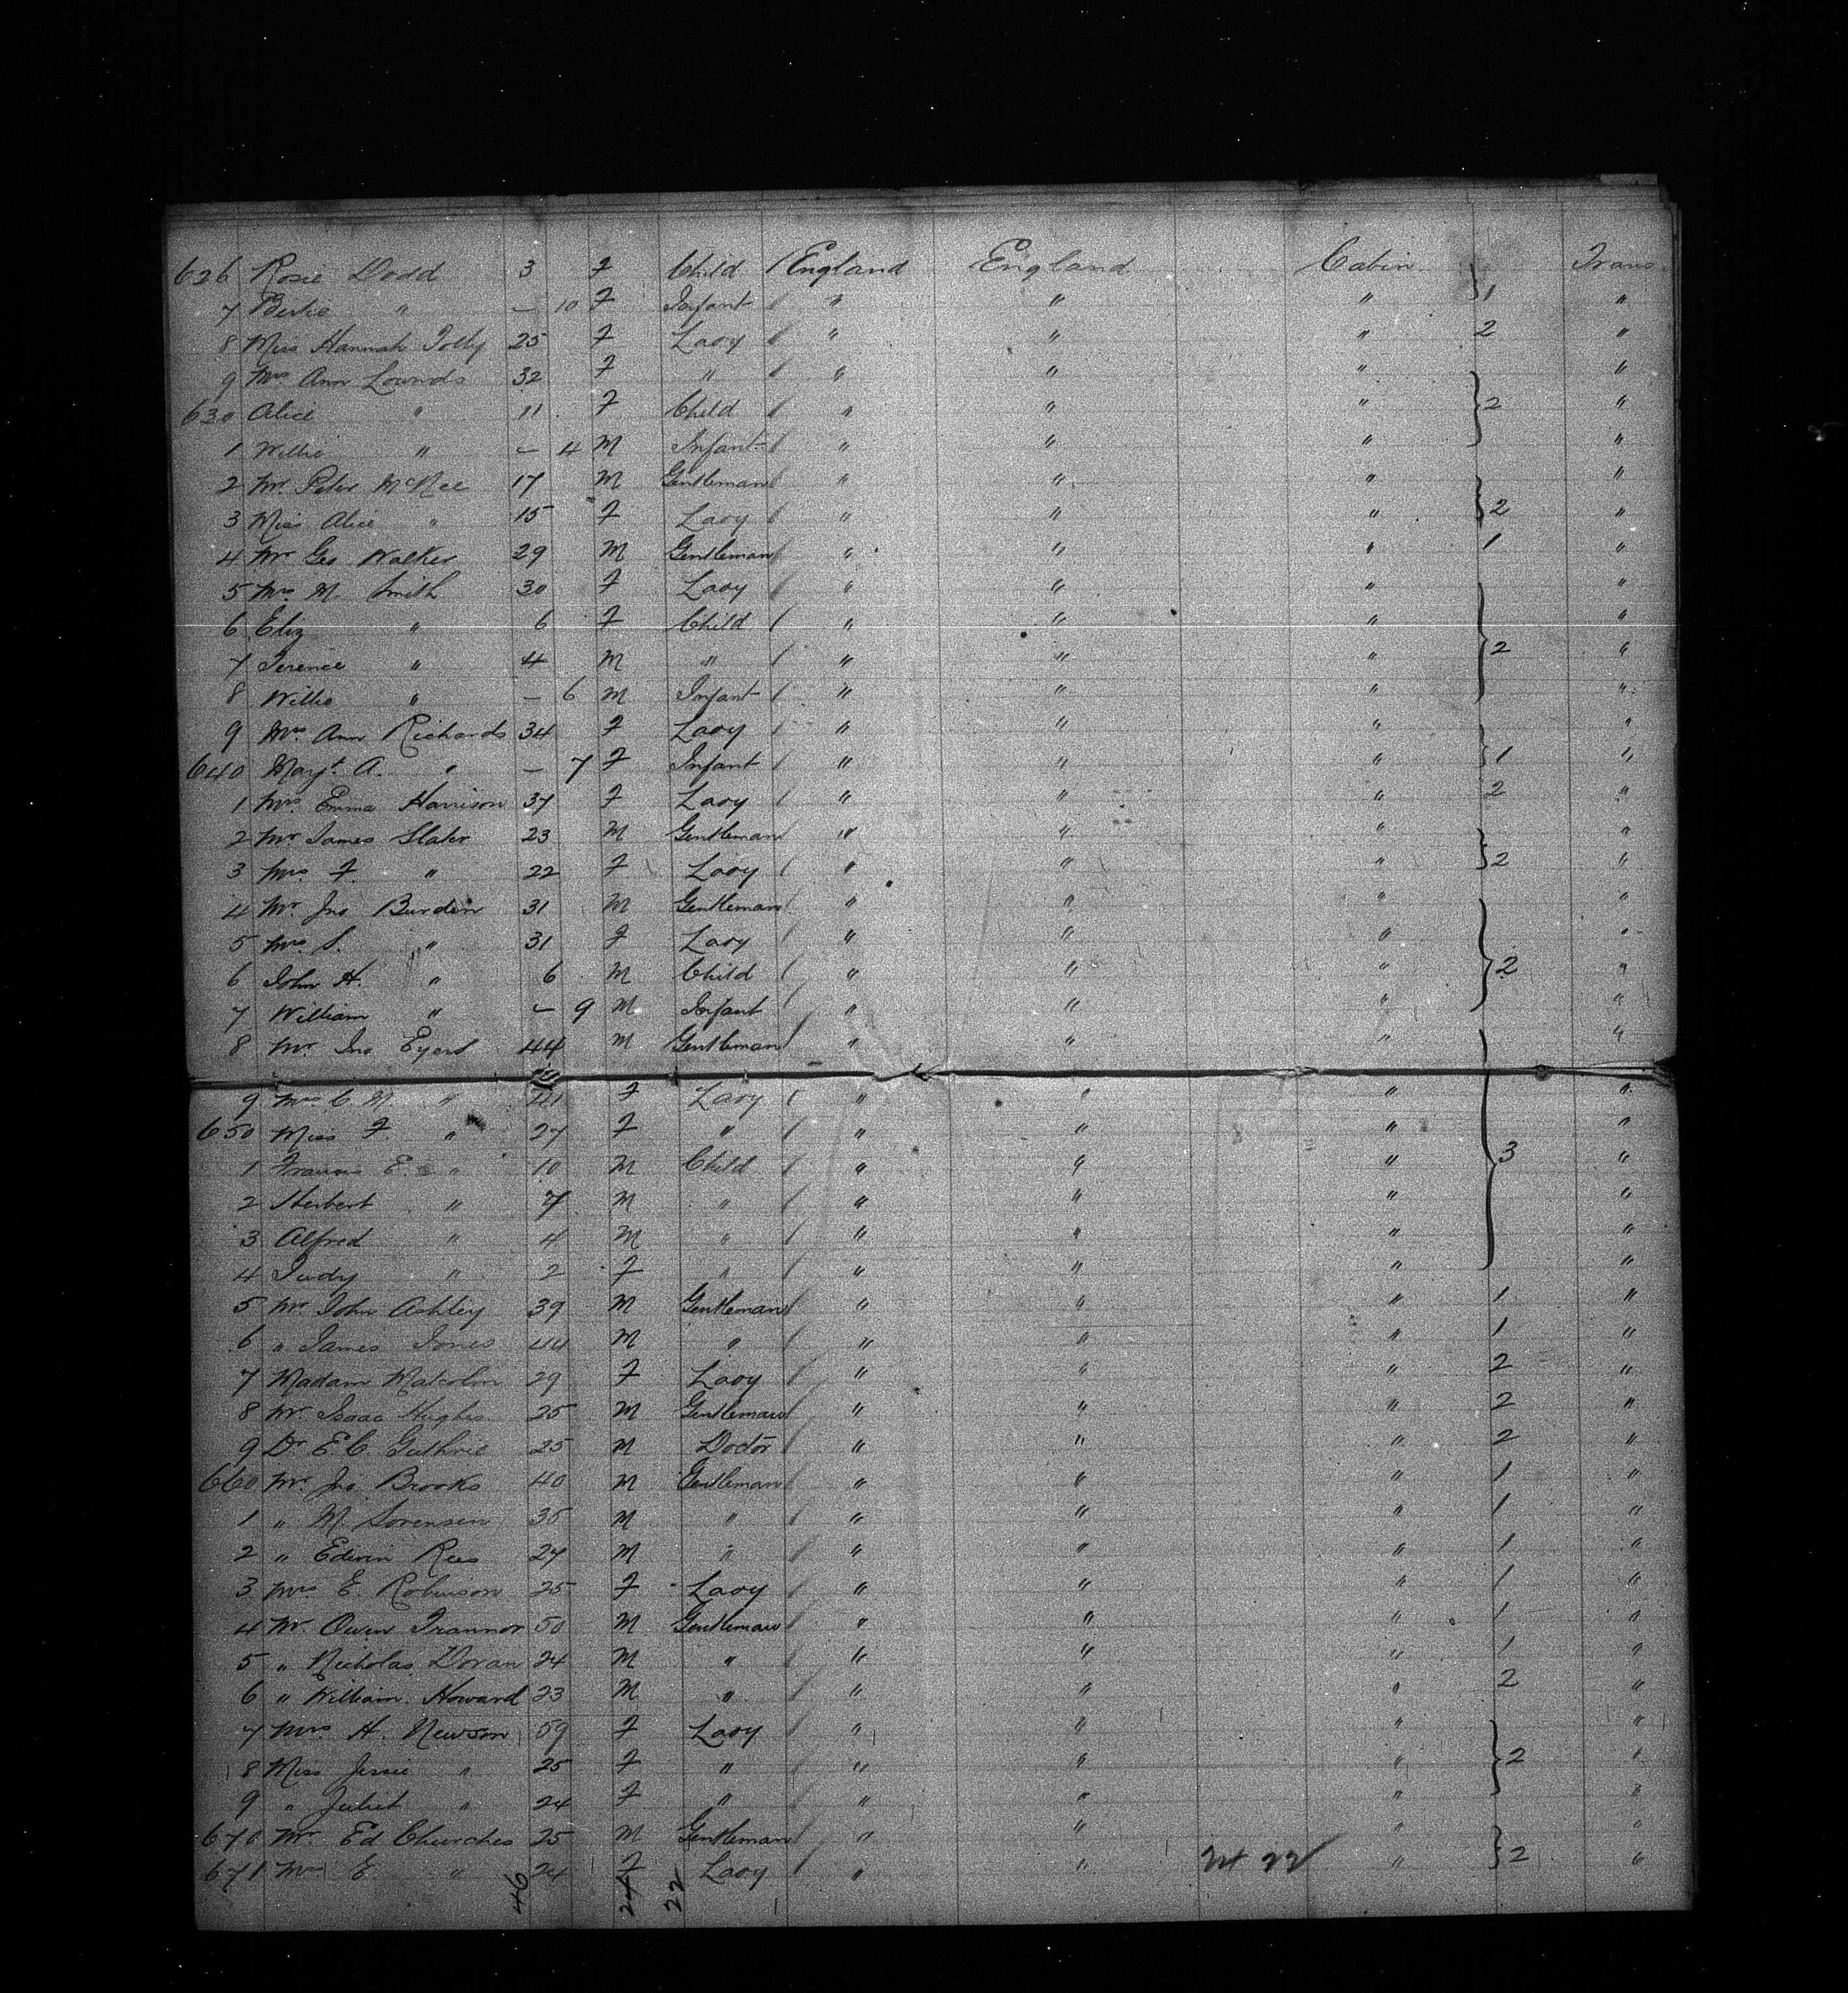 626 Rosie Dodd 3 F Child England England Cabin Trans
7 Bertie " — 10 F Infant " " " } 1 "
8 Miss Hannah Jolly 25 F Lady " " " 2 "
9 Mrs Ann Lownds 32 F " " " " "
630 Alice " 11 F Child " " " } 2 "
1 Willie " — 4 M Infant " " " "
2 Mr Peter McNee 17 M Gentleman " " " "
3 Miss Alice " 15 F Lady " " " } 2 "
4 Mr Geo Walker 29 M Gentleman " " " 1 "
5 Mrs M Smith 30 F Lady " " " "
6 Eliz " 6 F Child " " " "
7 Terence " 4 M " " " " } 2 "
8 Willie " — 6 M Infant " " " "
9 Mrs Ann Richards 34 F Lady " " " "
640 Mayt A. " — 7 F Infant " " " } 1 "
1 Mrs Emma Harrison 37 F Lady " " " 2 "
2 Mr James Slater 23 M Gentleman " " " "
3 Mrs F. " 22 F Lady " " " } 2 "
4 Mr Jno Burden 31 M Gentleman " " " "
5 Mrs S. " 31 F Lady " " " "
6 John H. " 6 M Child " " " } 2 "
7 William " — 9 M Infant " " " "
8 Mr Jno Eyers 44 M Gentleman " " " "
9 Mrs C. M. " F Lady " " " "
650 Miss F " 27 F " " " " "
1 Francis E. " 10 M Child " " " } 3 "
2 Herbert " 7 M " " " " "
3 Alfred " 4 M " " " " "
4 Judy " 2 F " " " " "
5 Mr John Ashley 39 M Gentleman " " " 1 "
6 " James Jones 44 M " " " " 1 "
7 Madam Malcolm 29 F Lady " " " 2 "
8 Mr Isaac Hughes 25 M Gentleman " " " 2 "
9 Dr E C Guthrie 25 M Doctor " " " 2 "
660 Mr Jno Brooks 40 M Gentleman " " " 1 "
1 " M Sorensen 35 M " " " " 1 "
2 " Edwin Rees 27 M " " " " 1 "
3 Mrs E. Robinson 25 F Lady " " " 1 "
4 Mr Owen Trannor 50 M Gentleman " " " 1 "
5 " Nicholas Doran 24 M " " " " 1 "
6 " William Howard 23 M " " " " 2 "
7 Mrs H. Newson 59 F Lady " " " "
8 Miss Jessie " 25 F " " " " } 2 "
9 " Juliet " 24 F " " " " "
670 Mr Ed Churches 25 M Gentleman " " " "
671 Mrs E " 24 F Lady " " 24 22 " } 2 "
46 24 22